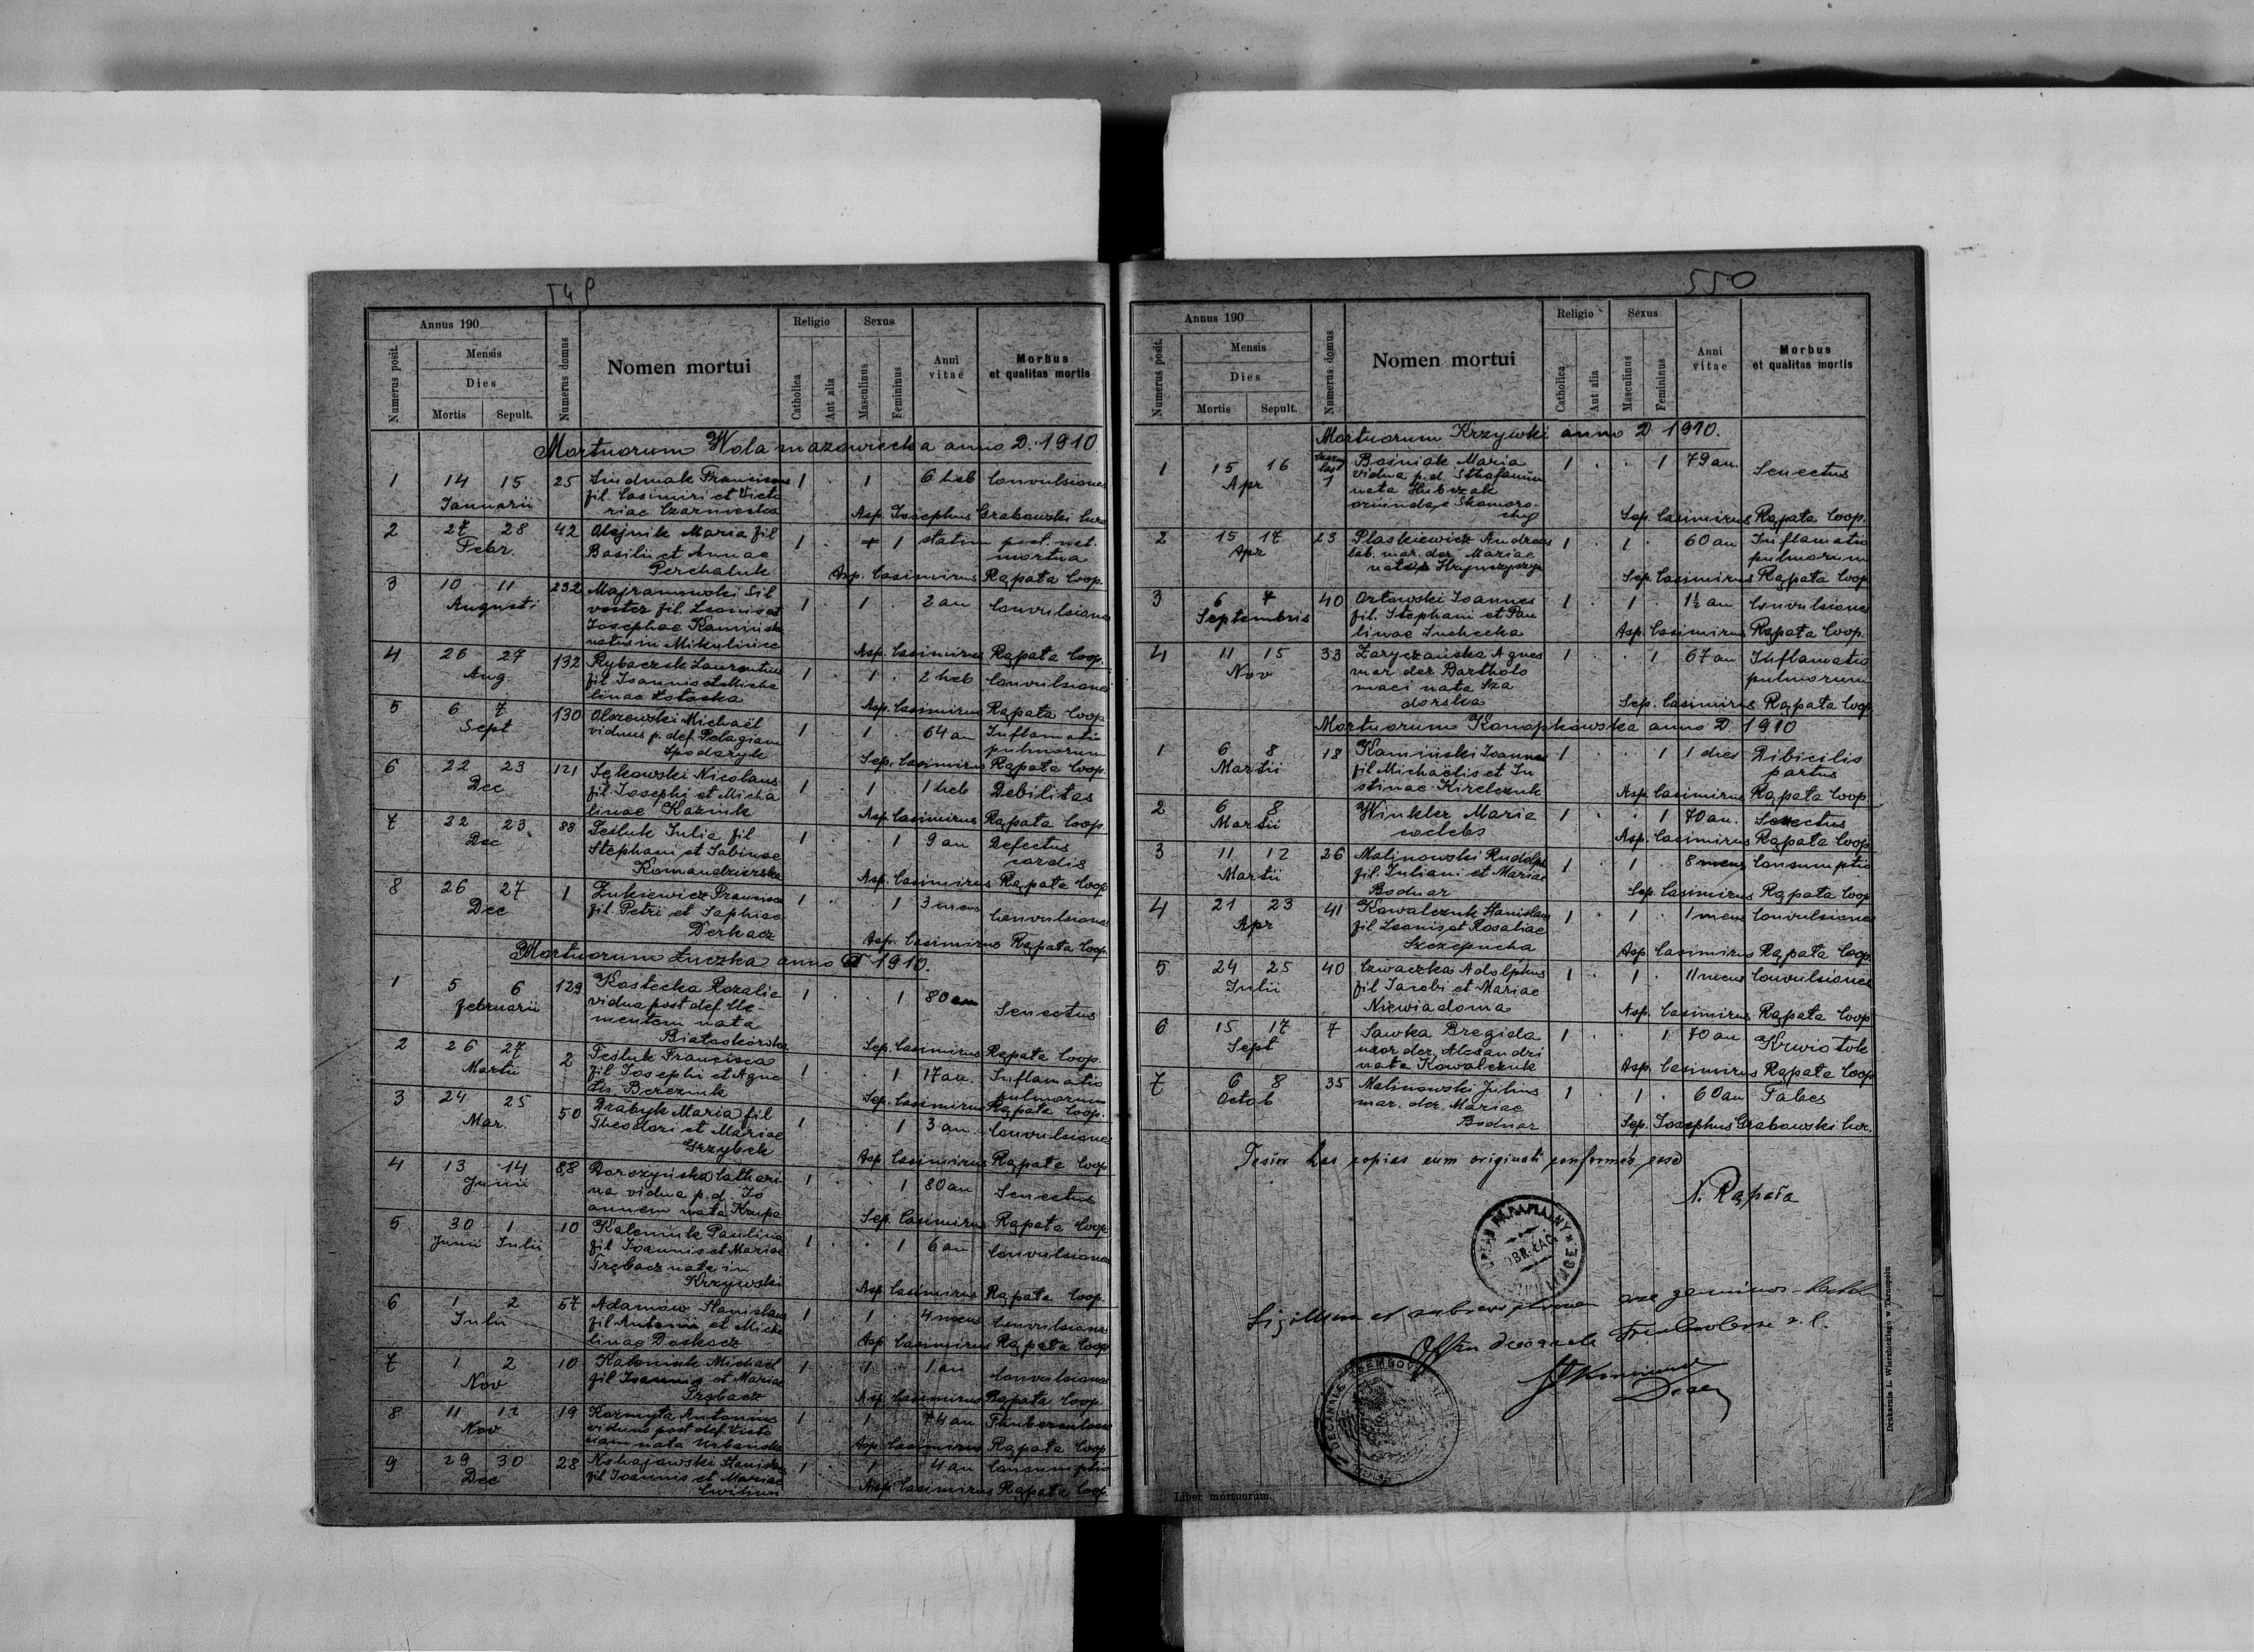 549
Annus 190
Numerus posit.
Mensis
Dies
Mortis Sepult.
Numerus domus
Nomen mortui
Religio
Catholica
Aut alia
Sexus
Masculinus
Femininus
Anni vitae
Morbus et qualitas mortis
Mortuorum Wola mazowiecka anno D. 1910.
1 14 15 25 Franciscus 1 1 6 heb Convulsiones
Januarii fil. Casimiri et Victo
riae Czarniecka Asp. Josephus Grabowski Cur
2 27 28 42 Olejnik Maria fil 1 1 statim post. nat.
Febr. Basilii et Annae mortua
Perchaluk Asp. Casimirus Rąpała Coop.
3 10 11 232 Majranowski Sil 1 1 2 an Convulsiones
Augusti vester fil. Leonis et
Josephae Kamińska
natus in Mikulińce Asp. Casimirus Rąpała Coop.
4 26 27 132 Rybaczek Laurentius 1 1 2 heb Convulsiones
Aug. fil Joannis et Micha
linae Asp. Casimirus Rąpała Coop
5 6 7 130 Olszewski Michaël 1 1 64 an Inflamatio
Sept viduus p. def. Pelagiam pulmorum
Spodaryk Sep. Casimirus Rąpała Coop.
6 22 23 121 Sękowski Nicolaus 1 1 1 heb Debilitas
Dec fil. Josephi et Micha
linae Kaźnik Asp. Casimirus Rąpała Coop.
7 22 23 88 Tesluk Julia fil 1 1 9 an Defectus
Dec Stephani et Sabinae cordis
Komandzierska Asp. Casimirus Rąpała Coop
8 26 27 1 Żukiewicz Francisca 1 1 3 mens Convulsiones
Dec fil. Petri et Sophiae
Derkacz Asp. Casimirus Rąpała Coop.
Mortuorum Łuczka anno D 1910.
1 5 6 129 Kostecka Rozalia 1 1 80 an Senectus
Februarii vidua post def. Cle-
mentem nata
Białoskórska Sep. Casimirus Rąpała Coop.
2 26 27 2 Tesluk Francisca 1 1 17 an. Inflamatio
Martii fil Josephi et Agne pulmorum
tis Bereziuk Sep. Casimirus Rąpała Coop.
3 24 25 50 Drabyk Maria fil 1 1 3 an Convulsiones
Mar. Theodori et Mariae
Grzybek Asp. Casimirus Rąpała Coop
4 13 14 88 Dorożyńska Cathari 1 1 80 an Senectus
Junii na vidua p. d. Jo
annem nata Krupa Sep. Casimirus Rąpała Coop
5 30 1 10 Kaleniuk Paulina 1 1 6 an Convulsiones
Junii Julii fil Joannis et Mariae
Trębacz nata in
Krzywki Asp Casimirus Rąpała Coop.
6 1 2 57 Adamów Stanislaus 1 1 4 mens Convulsiones
Julii fil Antonii et Micha
linae Doskocz Asp. Casimirus Rąpała Coop
7 1 2 10 Kaleniuk Michaël 1 1 1 an Convulsiones
Nov fil Joannis et Mariae
Trębacz Asp. Casimirus Rąpała Coop.
8 11 12 19 Antonius 1 1 74 an Thuberculosa
Nov viduus post def. Victo
riam nata Urbańska Asp. Casimirus Rąpała Coop
9 29 30 28 Stanislaus 1 1 4 an Consumptio
Dec fil Joannis et Mariae
Asp. Casimirus Rąpała Coop
550
Annus 190
Numerus posit.
Mensis
Dies
Mortis Sepult.
Numerus domus
Nomen mortui
Religio
Catholica
Aut alia
Sexus
Masculinus
Femininus
Anni vitae
Morbus et qualitas mortis
Mortuorum Krzywki anno D 1910.
1 15 16 1 Bośniak Maria 1 1 79 an. Senectus
Apr vidua p. d. Stephanum
nata Hubczak
oriunda e Skomoro-
chy Sep. Casimirus Rąpała Coop.
2 15 17 23 Plaskiewicz Andreas 1 1 60 an Inflamatio
Apr lab. mar. der. Mariae pulmorum
nata Sep. Casimirus Rąpała Coop
3 6 7 40 Orłowski Joannes 1 1 1½ an Convulsiones
Septembris fil. Stephani et Pau
linae Suchecka Asp. Casimirus Rąpała Coop.
4 11 15 33 Zaryczańska Agnes 1 1 67 an Inflamatio
Nov mar der Bartholo pulmorum
maei nata Sza
dorska Sep. Casimirus Rąpała Coop
Mortuorum Konopkówka anno D 1910
1 6 8 18 Kamiński Joannes 1 1 1 dies Dibicilis
Martii fil Michaëlis et Ju partus
stinae Kirelczuk Asp. Casimirus Rąpała Coop
2 6 8 Winkler Maria 1 1 70 an. Senectus
Martii caelebs Asp. Casimirus Rąpała Coop
3 11 12 26 Malinowski Rudolph 1 1 8 mens Consumptio
Martii fil. Juliani et Mariae
Bodnar Sep. Casimirus Rąpała Coop
4 21 23 41 Kowalczuk Stanislaus 1 1 1 mens Convulsiones
Apr fil Leonis et Rosaliae
Szczepucha Asp. Casimirus Rąpała Coop
5 24 25 40 Czwaczka Adolphus 1 1 11 mens Convulsiones
Julii fil Jacobi et Mariae
Niewiadoma Asp. Casimirus Rąpała Coop
6 15 17 7 Sawka Bregida 1 1 70 an Krwiotok
Sept uxor der. Alexandri
nata Kowalczuk Asp. Casimirus Rąpała Coop
7 6 8 35 Malinowski Julius 1 1 60 an Tabes
Octob mar. der. Mariae
Bodnar Sep. Josephus Grabowski Cur.
Testor has copias cum originali conformes esse
N. Rąpała
Sigillum et subscriptionem esse genuinos
Decan
Liber mortuorum.
Drukarnia L. Wierzbickiego w Tarnopolu